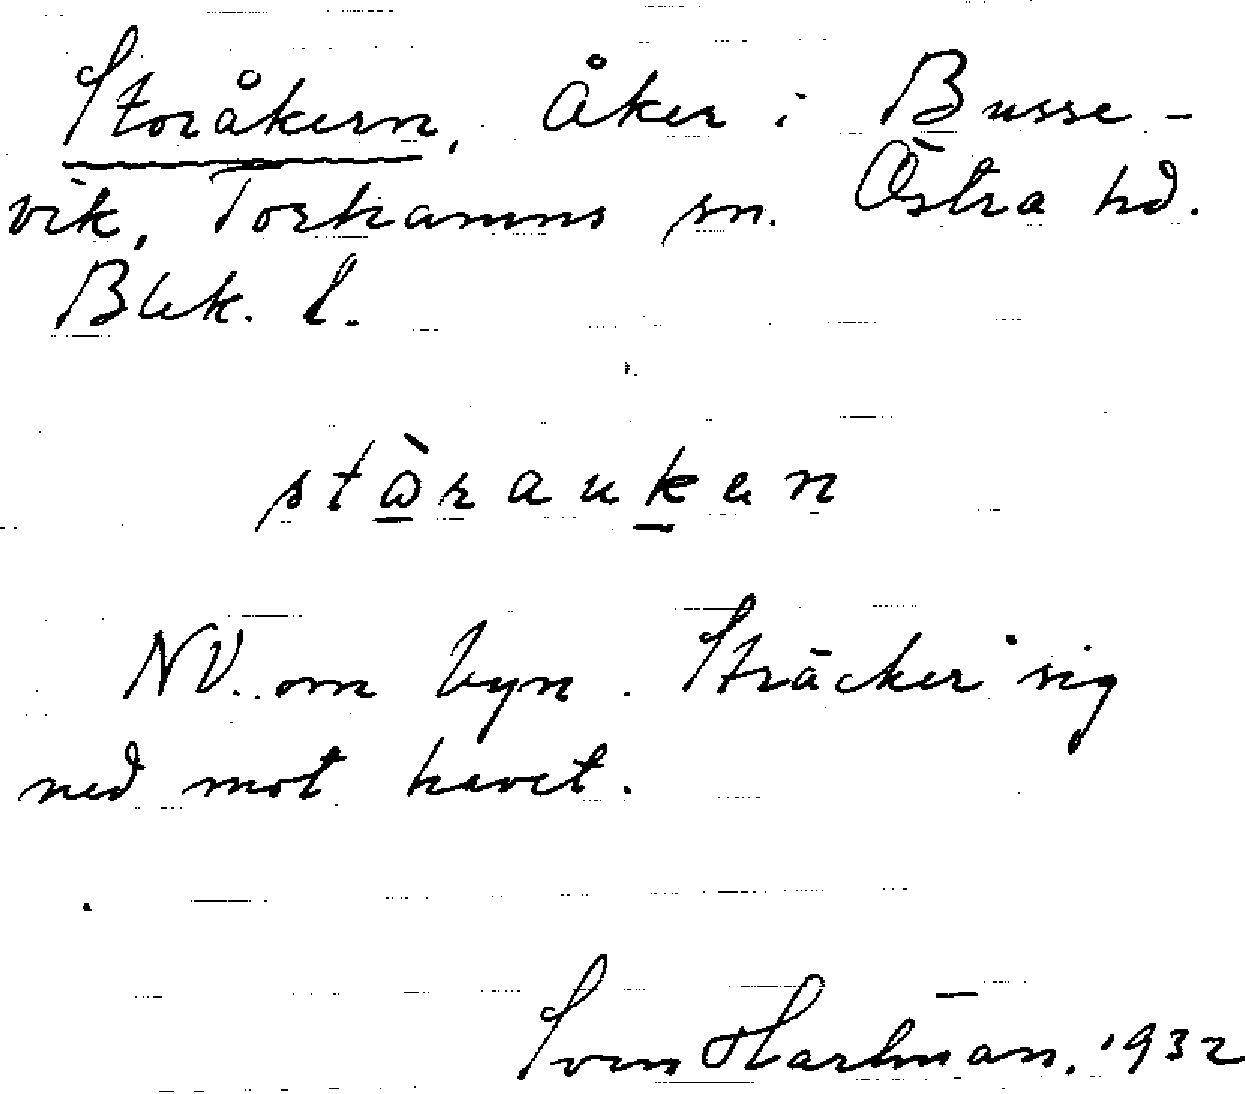 Storåkern, Åker i Busse-
vik, Torhamns sn. Östra hd.
Blek. l.
stὼraukan
NV. om byn. Sträcker sig
ned mot havet.
Sven Hartman. 1932